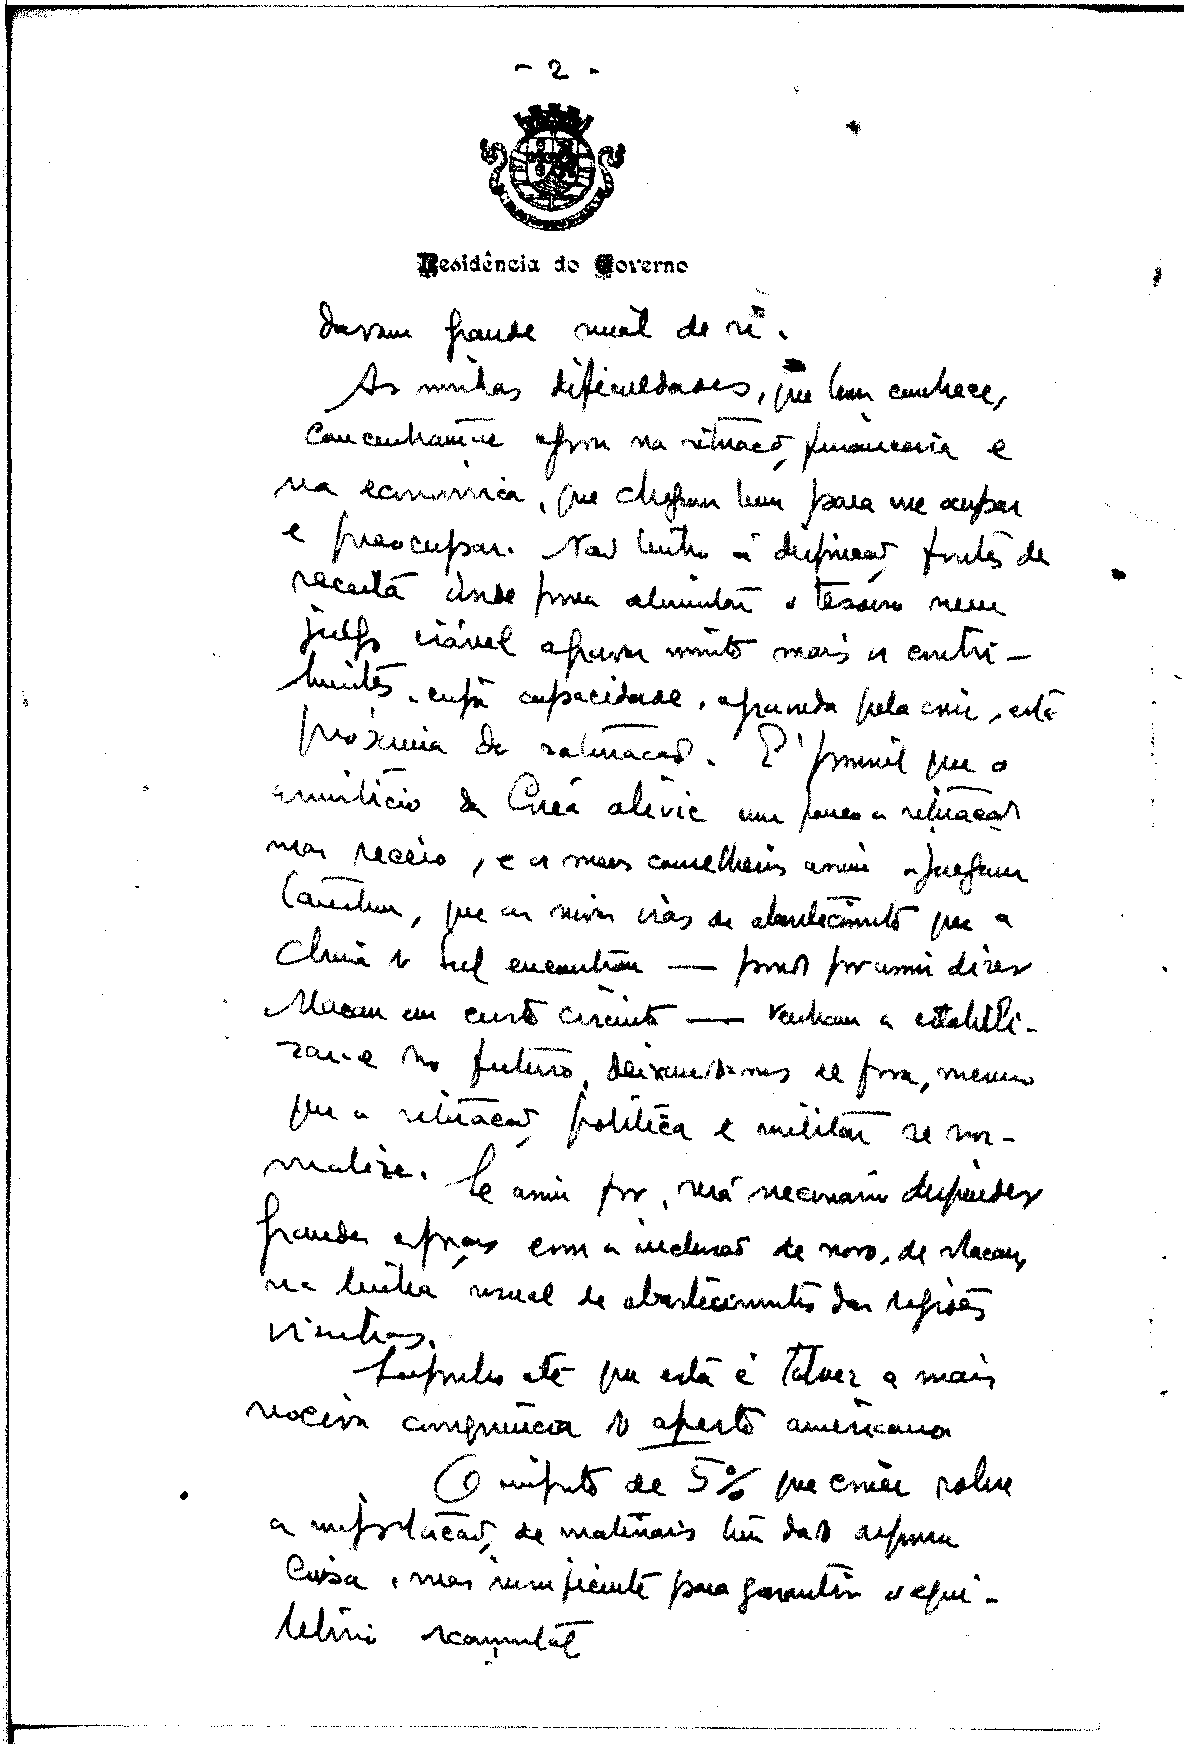 - 2 -
Residência do Governo
davam grande mal de si.
As minhas dificuldades, que bem conhece,
concentram-se agora na situação financeira e
na económica, que chegam bem para me ocupar
e preocupar. Não tenho à disposição fontes de
receita onde possa alimentar o tesouro nem
julgo viável agravar muito mais os contri-
buintes, cuja capacidade, agravada pela crise, está
próxima da saturação. É possível que o
armistício da Coreia alivie um pouco a situação
mas receio, e os meus conselheiros assim o julgam
também, que as novas vias de abastecimento que a
China do Sul encontrou — pondo por assim dizer
Macau em curto circuito — venham a estabili-
zar-se no futuro, deixando-nos de fora, mesmo
que a situação política e militar se nor-
malize. Se assim for, será necessário dispender
grandes esforços com a inclusão de novo, de Macau,
na linha usual de abastecimentos das regiões
vizinhas.
Suponho até que esta é talvez a mais
nociva consequência do aperto americano
O imposto de 5% que criei sobre
a importação de materiais tem dado alguma
coisa, mas insuficiente para garantir o equi-
líbrio